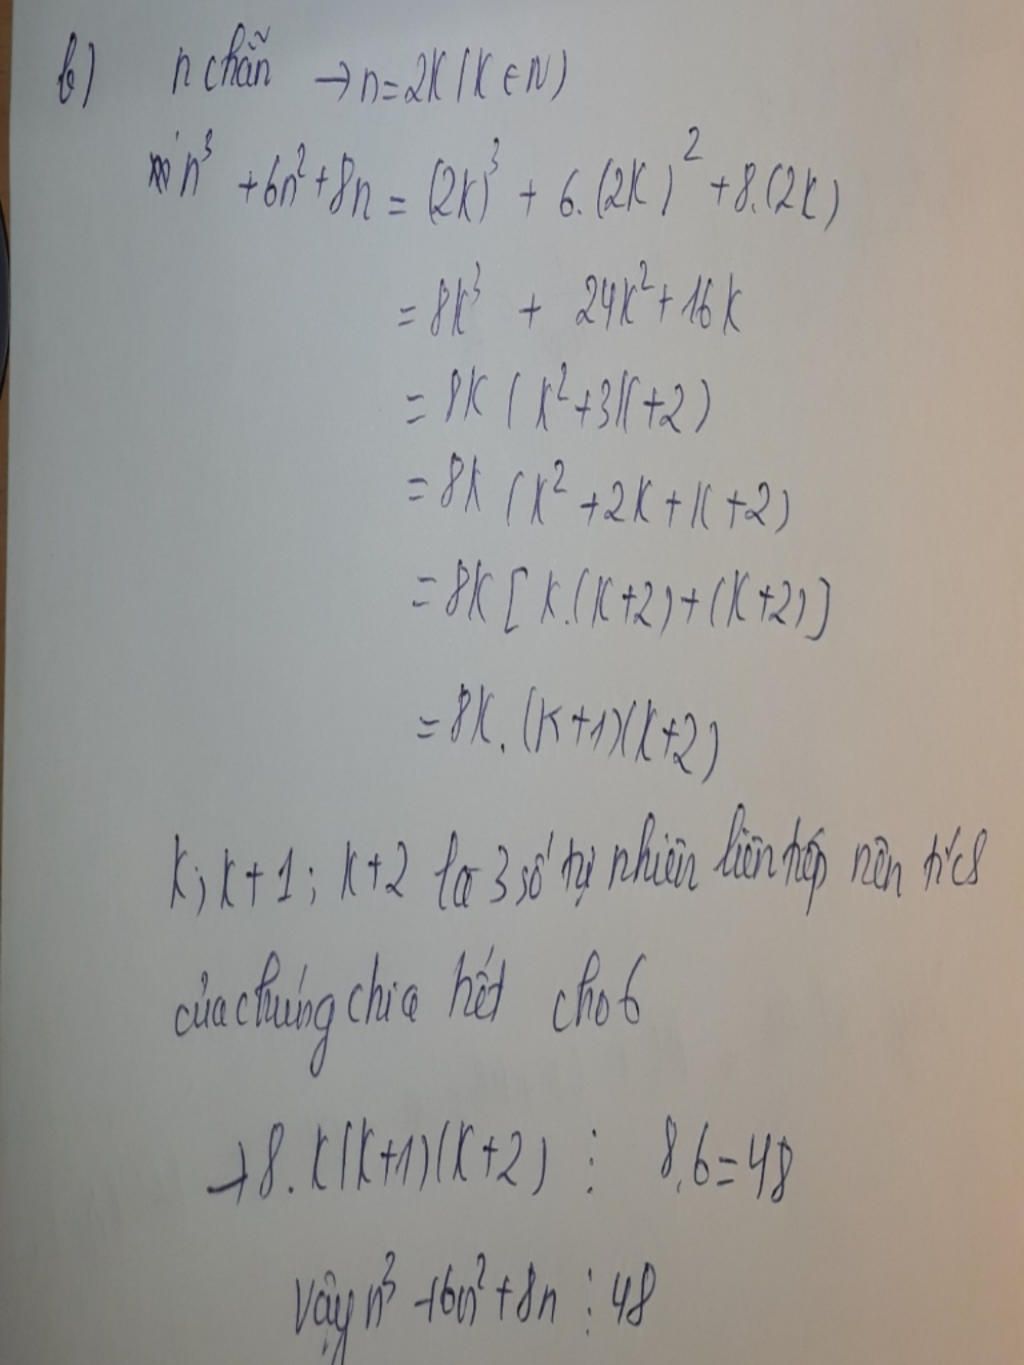 b) n chẵn → n = 2K (K ∈ N)
n³ + 6n² + 8n = (2K)³ + 6.(2K)² + 8.(2K)
= 8K³ + 24K² + 16K
= 8K (K² + 3K + 2)
= 8K (K² + 2K + K + 2)
= 8K [K.(K+2) + (K+2)]
= 8K.(K+1)(K+2)
K; K+1; K+2 là 3 số tự nhiên liên tiếp nên tích
của chúng chia hết cho 6
→ 8.K(K+1)(K+2) ⋮ 8.6 = 48
Vậy n³ + 6n² + 8n ⋮ 48